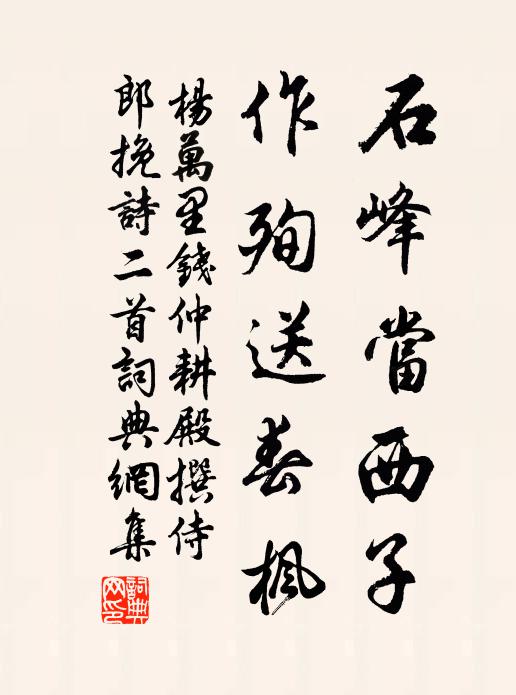 石峰當西子
作殉送春楓
楊萬里錢仲耕殿撰侍
郎挽詩二首詞典網集